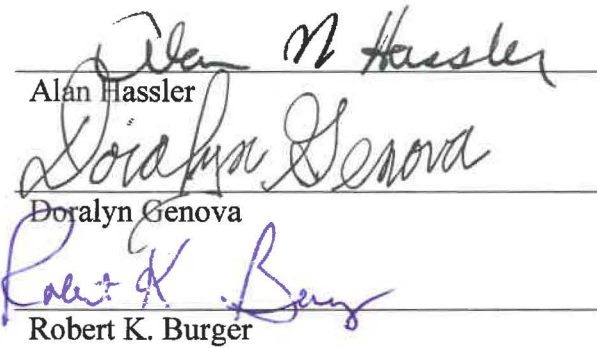 Alan N Hassler
Alan Hassler
Doralyn Genova
Doralyn Genova
Robert K. Burger
Robert K. Burger